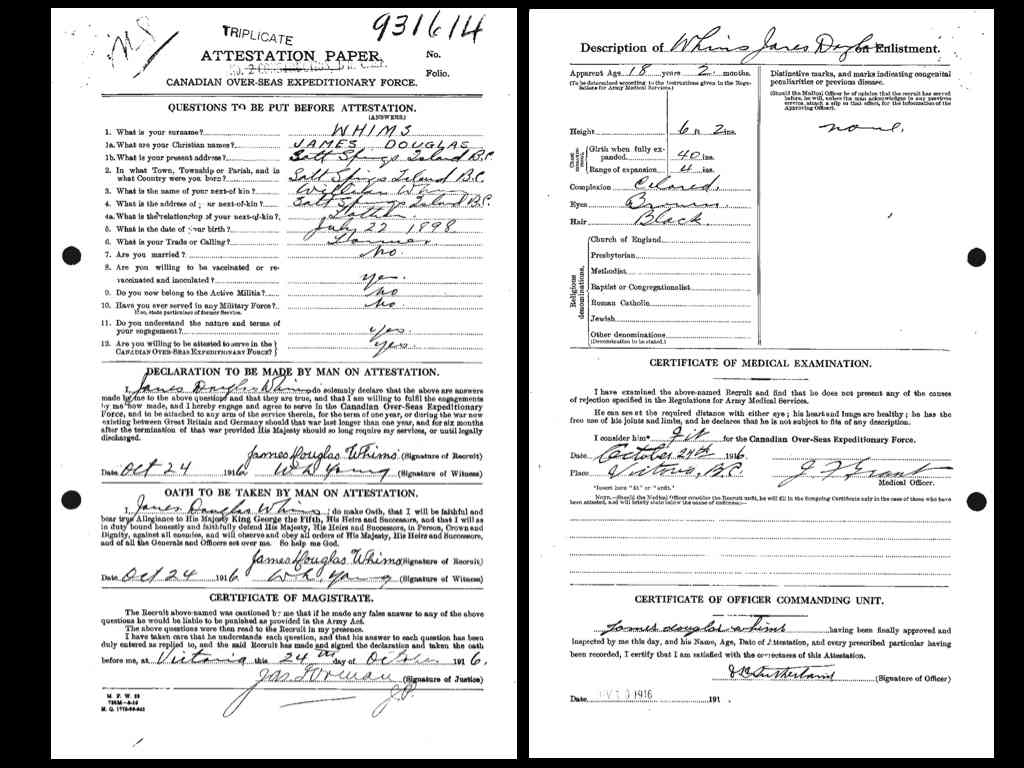 931614
TRIPLICATE
ATTESTATION PAPER.
No.
Folio.
CANADIAN OVER-SEAS EXPEDITIONARY FORCE.
QUESTIONS TO BE PUT BEFORE ATTESTATION.
(ANSWERS)
1. What is your surname? WHIMS
1a. What are your Christian names? JAMES DOUGLAS
1b. What is your present address? Salt Springs Island B.C.
2. In what Town, Township or Parish, and in
what Country were you born? Salt Springs Island B.C.
3. What is the name of your next-of-kin? William Whims
4. What is the address of your next-of-kin? Salt Springs Island B.C.
4a. What is the relationship of your next-of-kin? Father
5. What is the date of your birth? July 22 1898
6. What is your Trade or Calling? Farmer
7. Are you married? No.
8. Are you willing to be vaccinated or re-
vaccinated and inoculated? yes.
9. Do you now belong to the Active Militia? No
10. Have you ever served in any Military Force? No
If so, state particulars of former Service.
11. Do you understand the nature and terms of
your engagement? yes.
12. Are you willing to be attested to serve in the
CANADIAN OVER-SEAS EXPEDITIONARY FORCE? yes.
DECLARATION TO BE MADE BY MAN ON ATTESTATION.
I, James Douglas Whims, do solemnly declare that the above are answers
made by me to the above questions and that they are true, and that I am willing to fulfil the engagements
by me now made, and I hereby engage and agree to serve in the Canadian Over-Seas Expeditionary
Force, and to be attached to any arm of the service therein, for the term of one year, or during the war now
existing between Great Britain and Germany should that war last longer than one year, and for six months
after the termination of that war provided His Majesty should so long require my services, or until legally
discharged.
James Douglas Whims (Signature of Recruit)
Date Oct 24 1916 (Signature of Witness)
OATH TO BE TAKEN BY MAN ON ATTESTATION.
I, James Douglas Whims, do make Oath, that I will be faithful and
bear true Allegiance to His Majesty King George the Fifth, His Heirs and Successors, and that I will as
in duty bound honestly and faithfully defend His Majesty, His Heirs and Successors, in Person, Crown and
Dignity, against all enemies, and will observe and obey all orders of His Majesty, His Heirs and Successors,
and of all the Generals and Officers set over me. So help me God.
James Douglas Whims (Signature of Recruit)
Date Oct 24 1916 (Signature of Witness)
CERTIFICATE OF MAGISTRATE.
The Recruit above-named was cautioned by me that if he made any false answer to any of the above
questions he would be liable to be punished as provided in the Army Act.
The above questions were then read to the Recruit in my presence.
I have taken care that he understands each question, and that his answer to each question has been
duly entered as replied to, and the said Recruit has made and signed the declaration and taken the oath
before me, at Victoria this 24th day of October 1916.
(Signature of Justice)
J.P.
M. F. W. 23
Description of Whims James Douglas on Enlistment.
Apparent Age 18 years 2 months.
(To be determined according to the instructions given in the Regulations for Army Medical Services.)
Distinctive marks, and marks indicating congenital
peculiarities or previous disease.
(Should the Medical Officer be of opinion that the recruit has served
before, he will, unless the man acknowledges to any previous
service, attach a slip to that effect, for the information of the
Approving Officer).
none.
Height 6 ft 2 ins.
Girth when fully expanded 40 ins.
Range of expansion 4 ins.
Complexion Colored.
Eyes Brown
Hair Black
Religious denominations.
Church of England
Presbyterian
Methodist
Baptist or Congregationalist
Roman Catholic
Jewish
Other denominations
(Denomination to be stated.)
CERTIFICATE OF MEDICAL EXAMINATION.
I have examined the above-named Recruit and find that he does not present any of the causes
of rejection specified in the Regulations for Army Medical Services.
He can see at the required distance with either eye; his heart and lungs are healthy; he has the
free use of his joints and limbs, and he declares that he is not subject to fits of any description.
I consider him* Fit for the Canadian Over-Seas Expeditionary Force.
Date October 24th 1916
Place Victoria, B.C. J F Grant
Medical Officer.
*Insert here "fit" or "unfit."
NOTE.—Should the Medical Officer consider the Recruit unfit, he will fill in the foregoing Certificate only in the case of those who have
been attested, and will briefly state below the cause of unfitness:—
CERTIFICATE OF OFFICER COMMANDING UNIT.
James douglas whims having been finally approved and
inspected by me this day, and his Name, Age, Date of Attestation, and every prescribed particular having
been recorded, I certify that I am satisfied with the correctness of this Attestation.
(Signature of Officer)
Date 1916 191 .